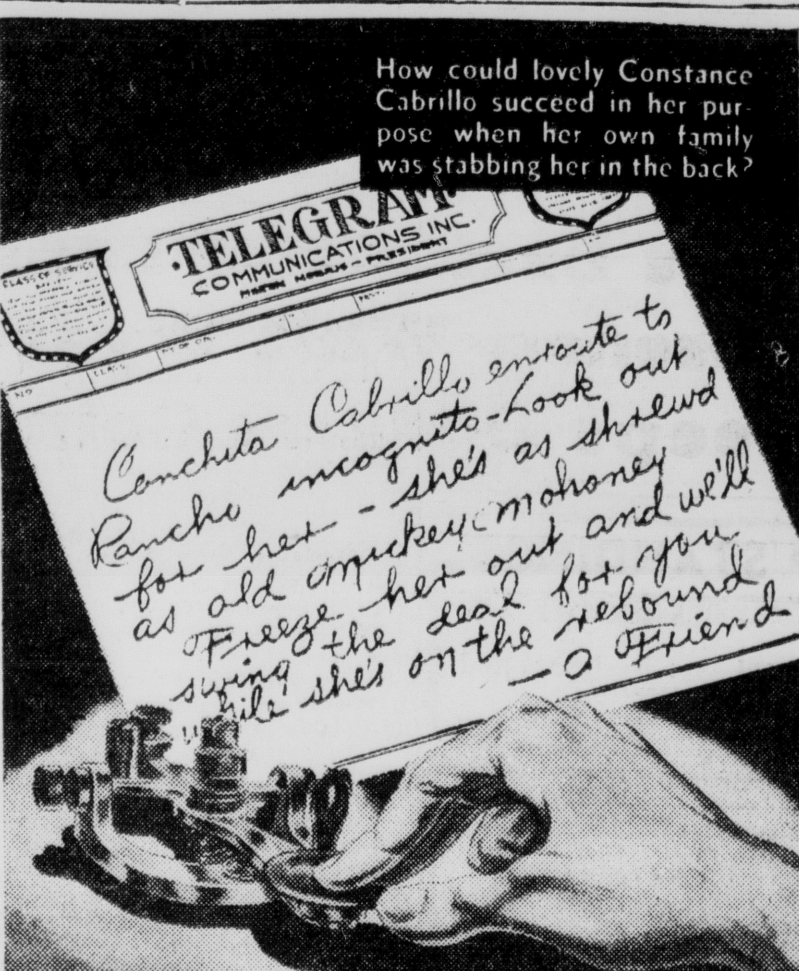 How could lovely Constance
Cabrillo succeed in her pur-
pose when her own family
was stabbing her in the back?
TELEGRAM
COMMUNICATIONS INC.
PRESIDENT
CLASS OF SERVICE
NO
CLASS
Conchita Cabrillo enroute to
Rancho incognito - Look out
for her - she's as shrewd
as old Mickey Mohoney
Freeze her out and we'll
swing the deal for you
while she's on the rebound
- A Friend